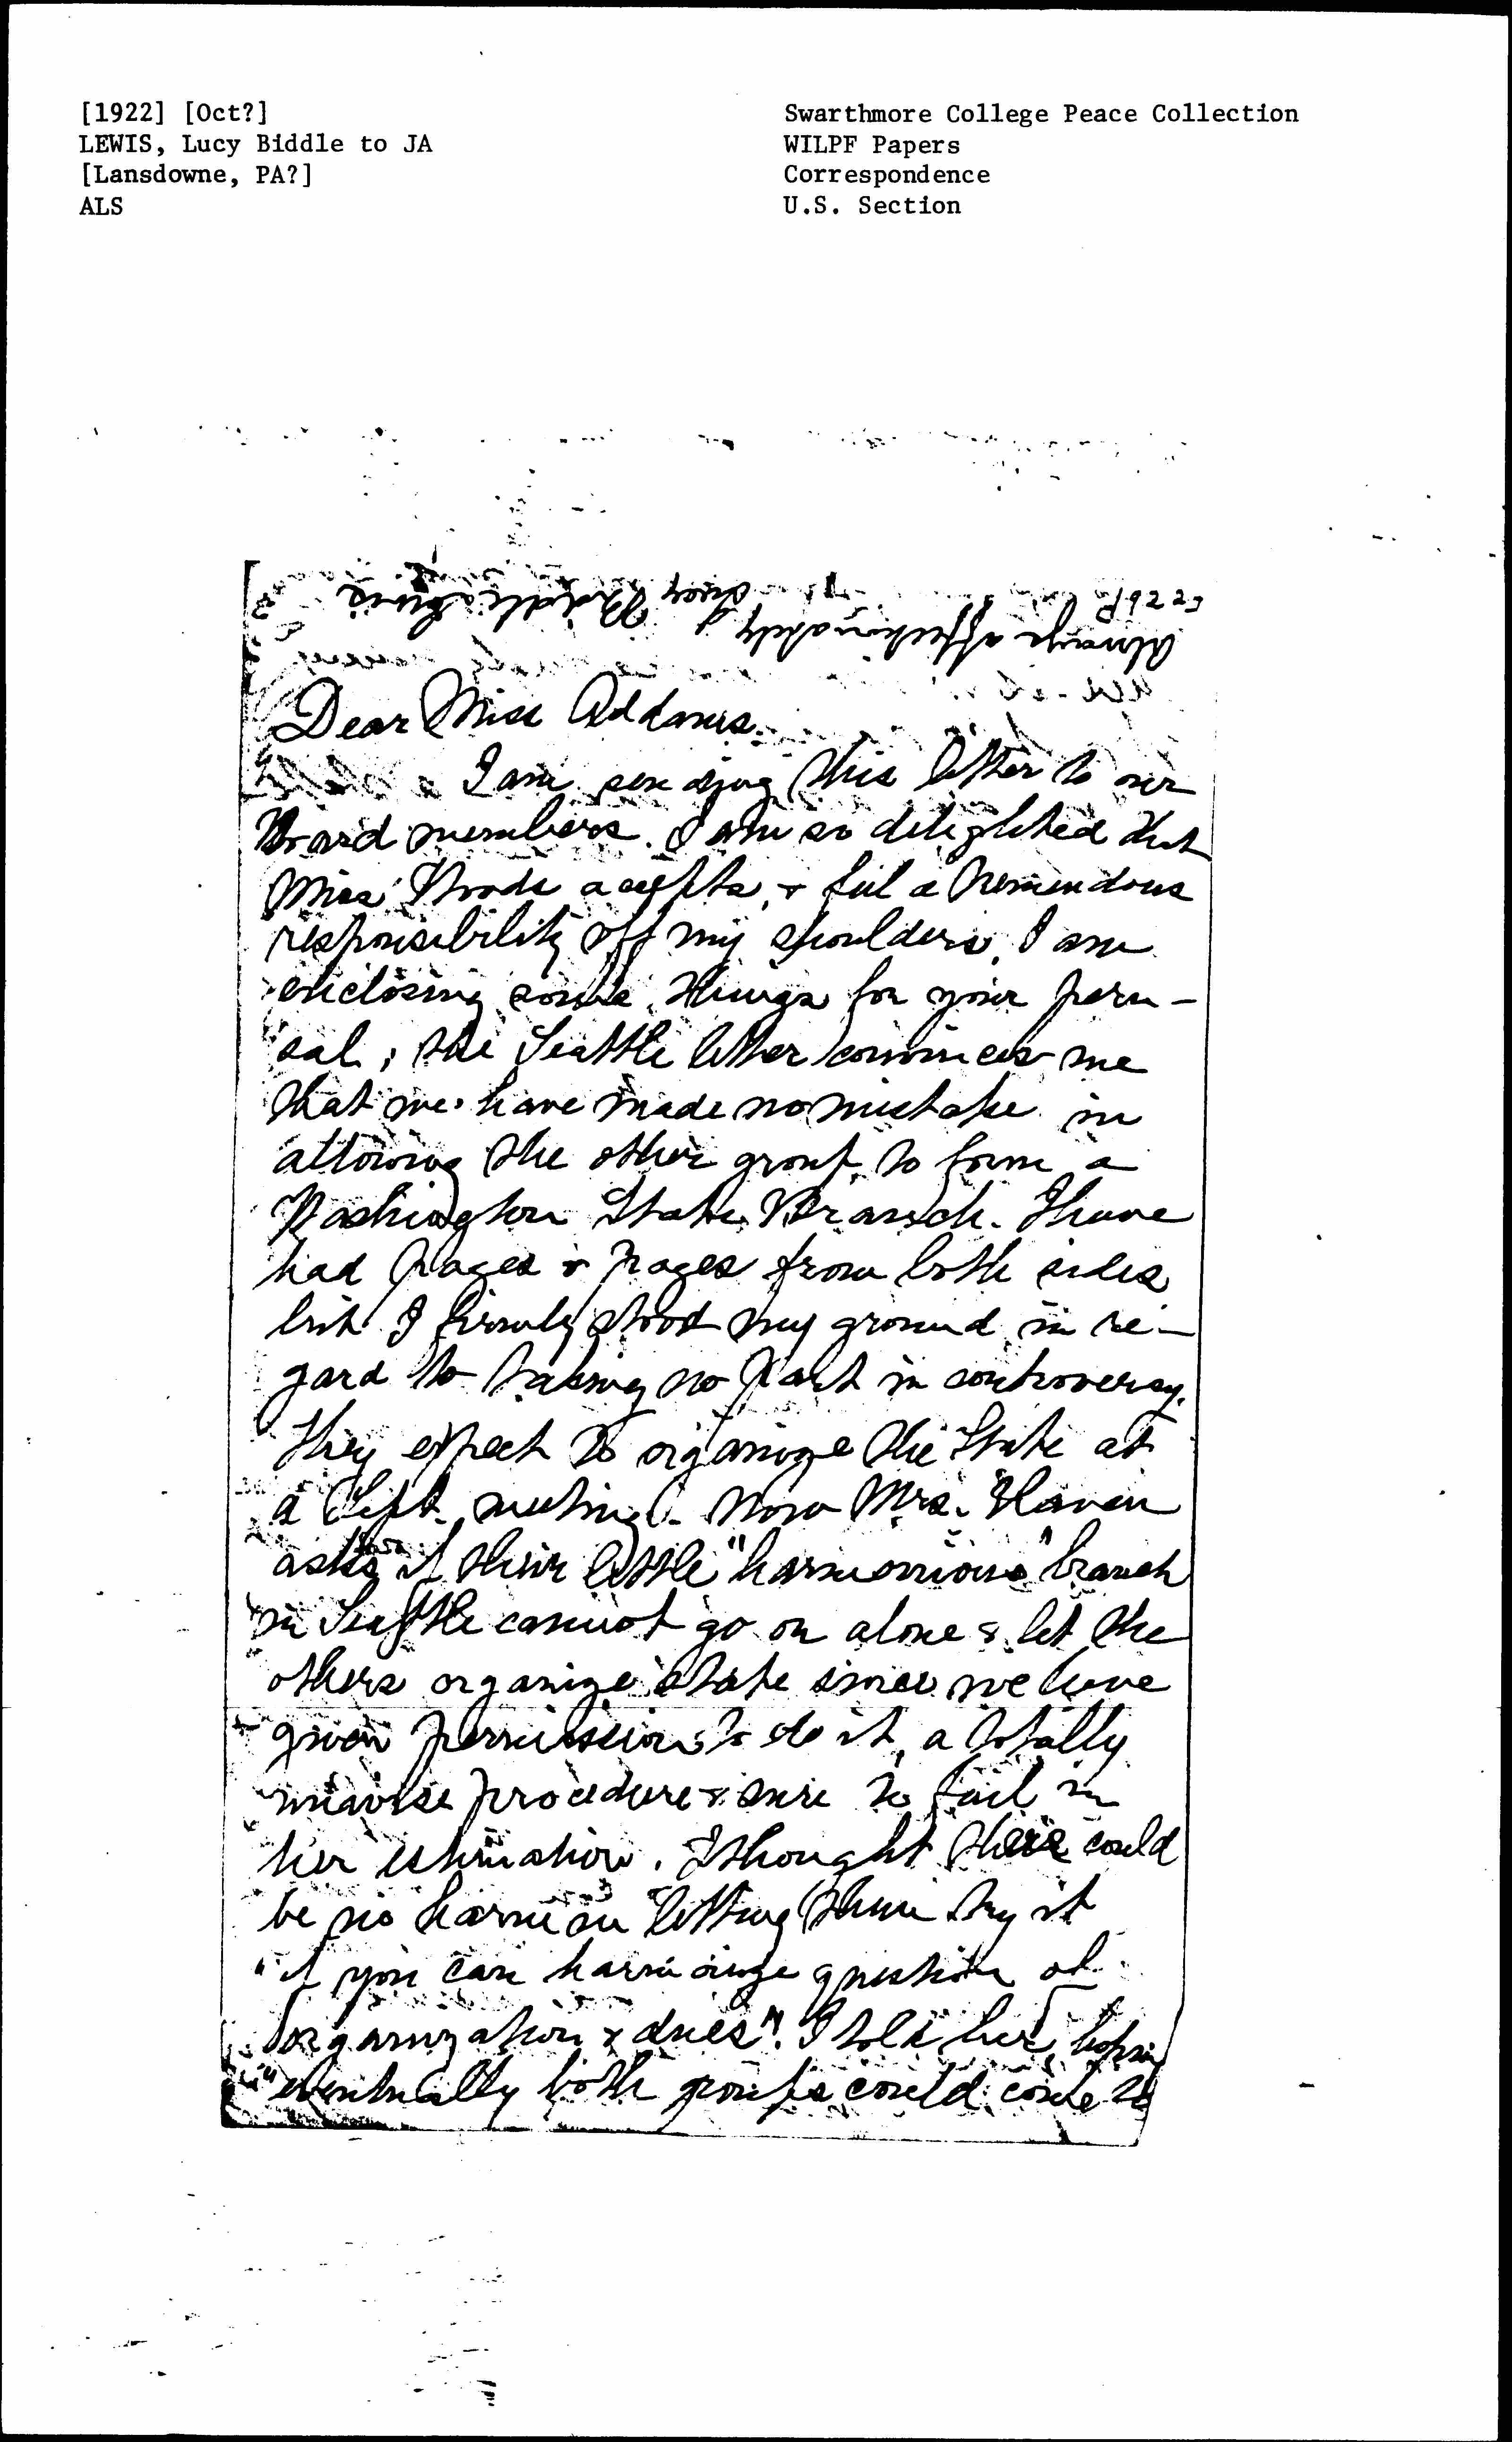 [1922] [Oct?]
LEWIS, Lucy Biddle to JA
[Lansdowne, PA?]
ALS
Swarthmore College Peace Collection
WILPF Papers
Correspondence
U.S. Section
[1922]
Always affectionately
Lucy Biddle Lewis
Dear Miss Addams.
I am sending this letter to our
Board members. I am so delighted that
Miss Woods accepts, & feel a tremendous
responsibility off my shoulders. I am
enclosing some things for your peru-
sal, the Seattle letter convinces me
that we have made no mistake in
allowing the other group to form a
Washington State Branch. I have
had pages & pages from both sides
but I firmly stood my ground in re-
gard to taking no part in controversy.
They expect to organize the State at
a Sept. meeting. Now Mrs. Haven
asks if their little "harmonious" branch
in Seattle cannot go on alone & let the
others organize state since we have
given permission to do it, a totally
unwise procedure & sure to fail in
her estimation. I thought there could
be no harm in letting them try it
"if you can harmonize question of
organization & dues". I told her, hoping
eventually both groups could come to